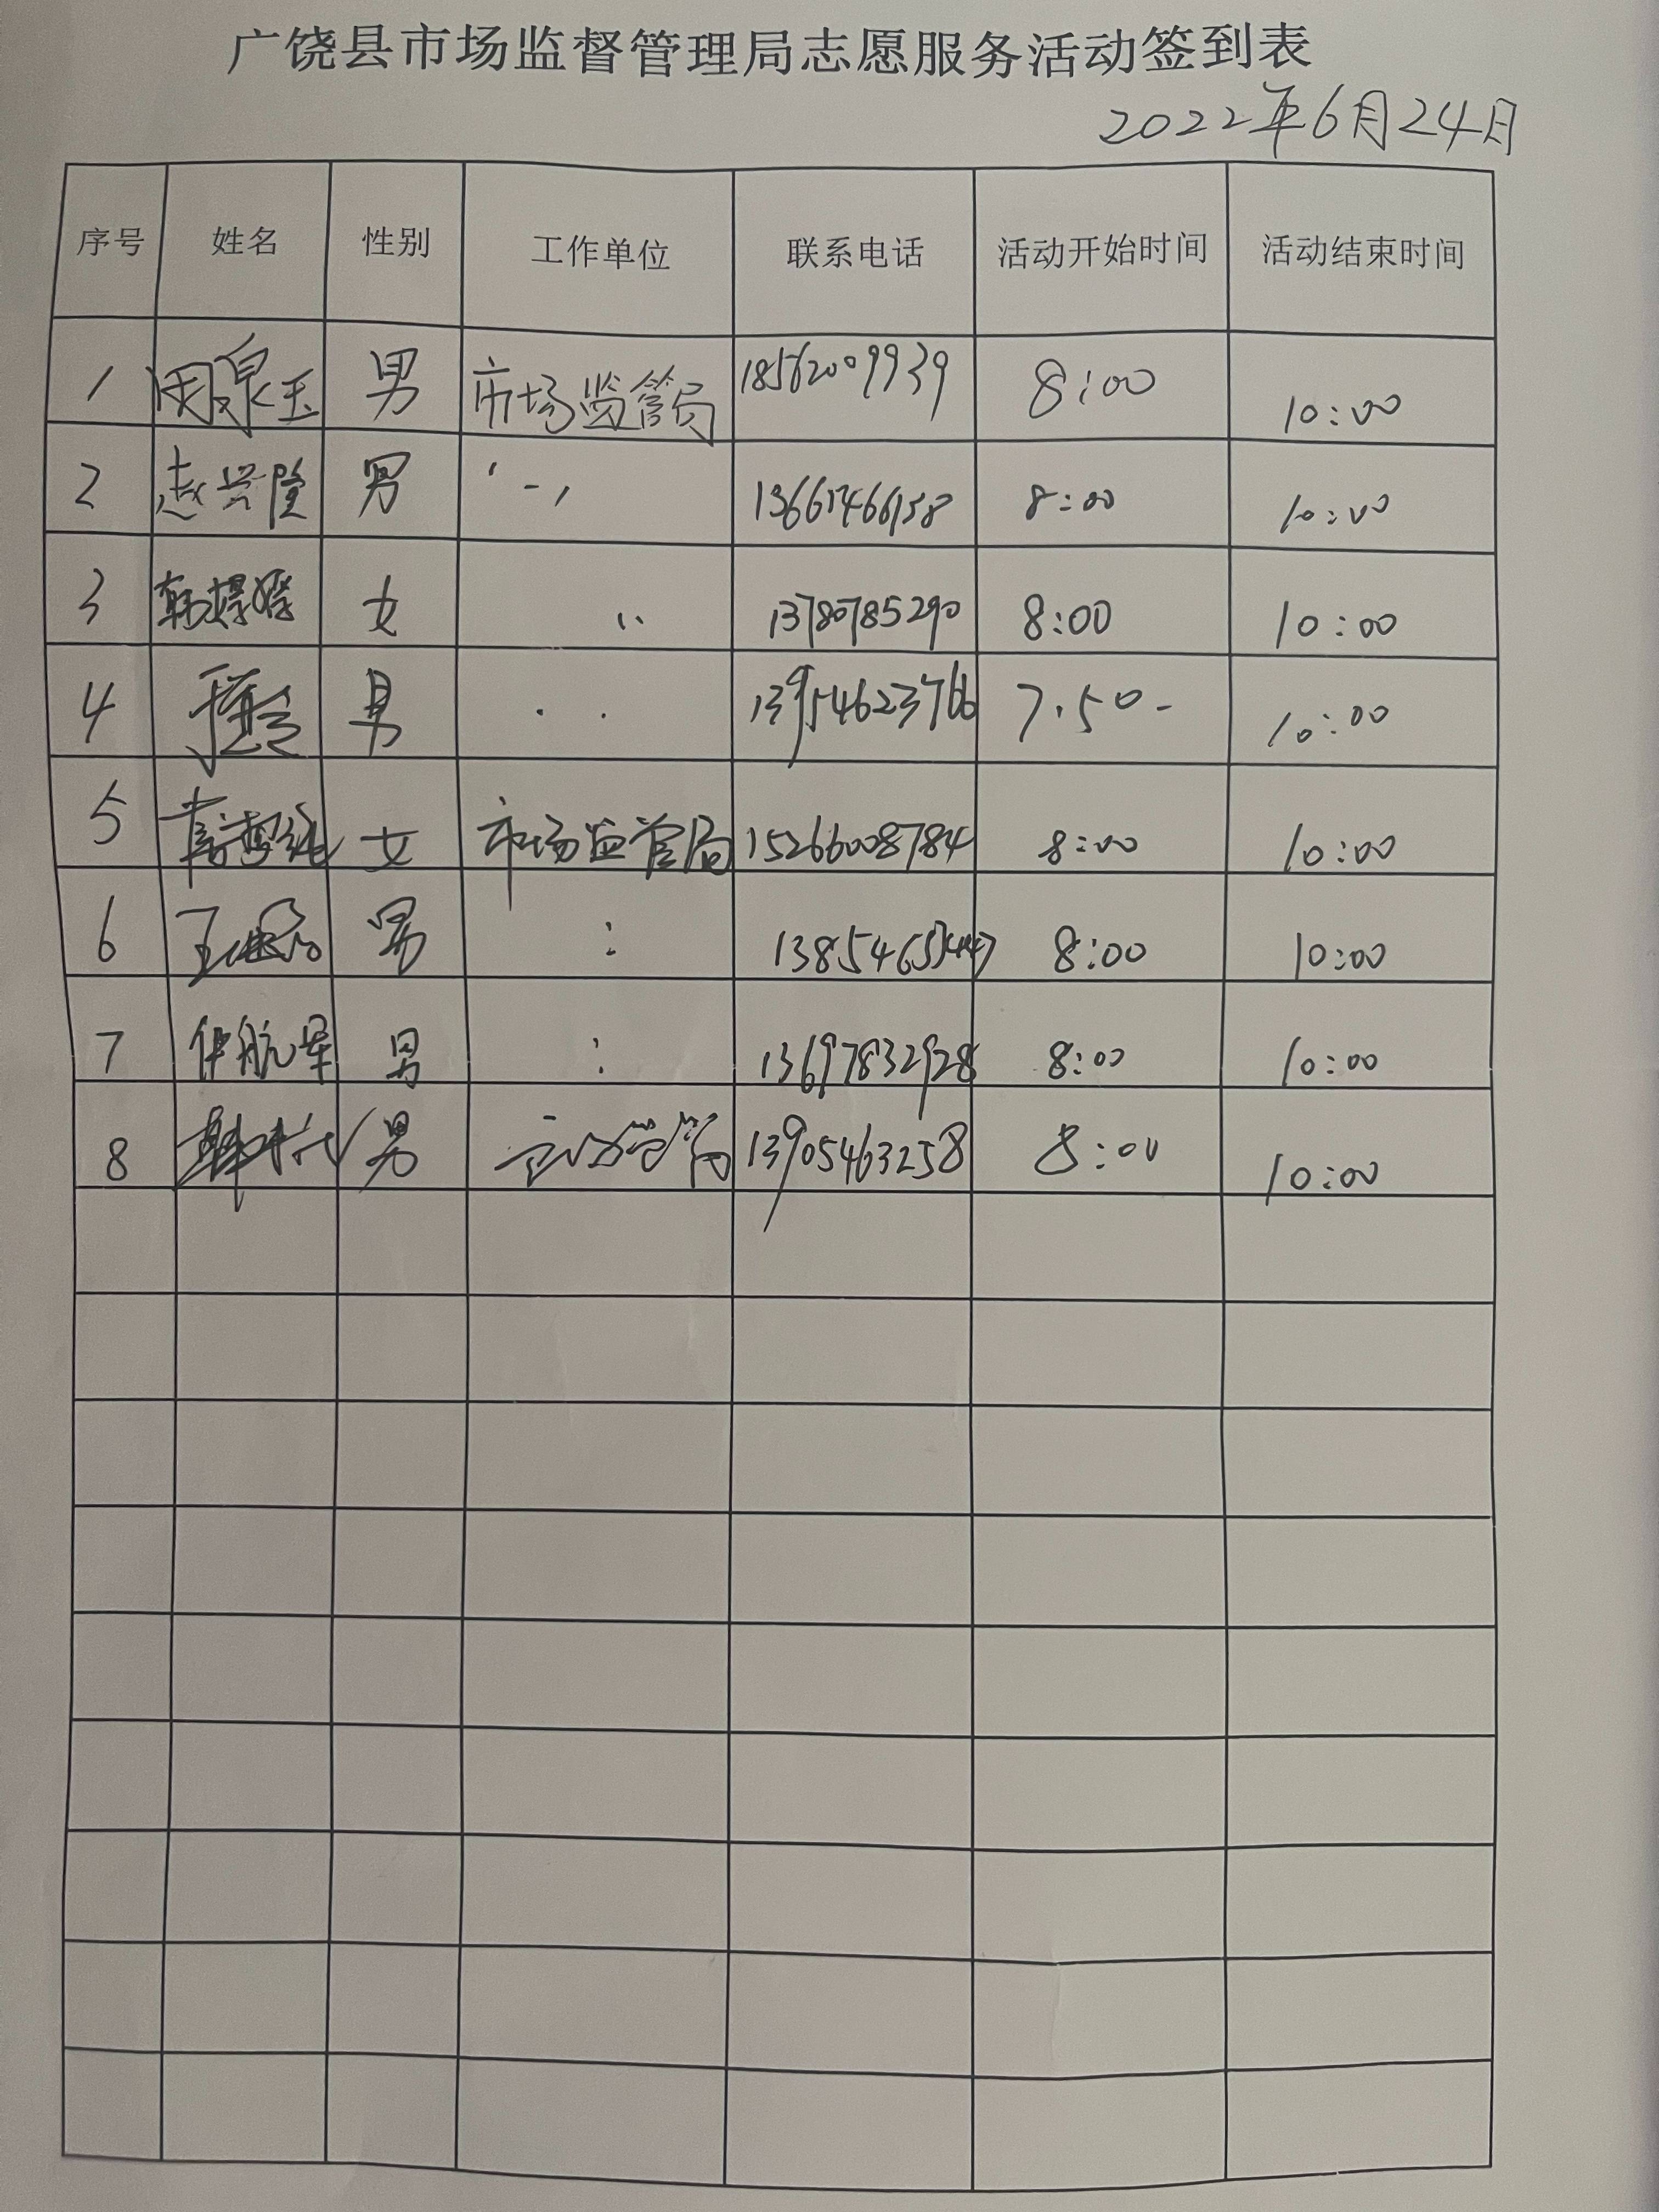 广饶县市场监督管理局志愿服务活动签到表
2022年6月24日
序号 姓名 性别 工作单位 联系电话 活动开始时间 活动结束时间
1 周泉玉 男 市场监管局 18562009939 8:00 10:00
2 赵兴隆 男 8:00 10:00
3 女 13780785290 8:00 10:00
4 男 13954623766 7.50 10:00
5 女 市场监管局 15266008784 8:00 10:00
6 男 8:00 10:00
7 男 13697832928 8:00 10:00
8 男 13905463258 8:00 10:00